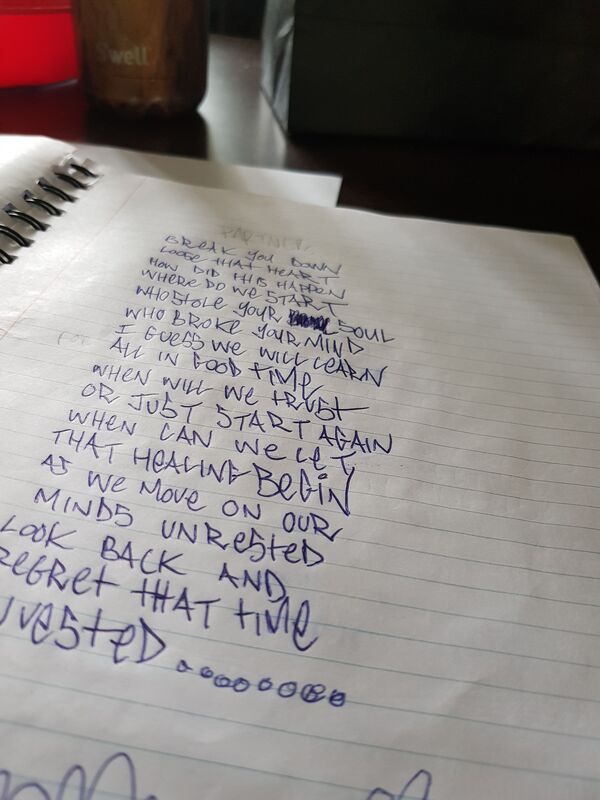 S'well
BREAK YOU DOWN
LOOSE THAT HEART
HOW DID THIS HAPPEN
WHERE DO WE START
WHO STOLE YOUR SOUL
WHO BROKE YOUR MIND
I GUESS WE WILL LEARN
ALL IN GOOD TIME
WHEN WILL WE TRUST
OR JUST START AGAIN
WHEN CAN WE LET
THAT HEALING BEGIN
AS WE MOVE ON OUR
MINDS UNRESTED
LOOK BACK AND
REGRET THAT TIME